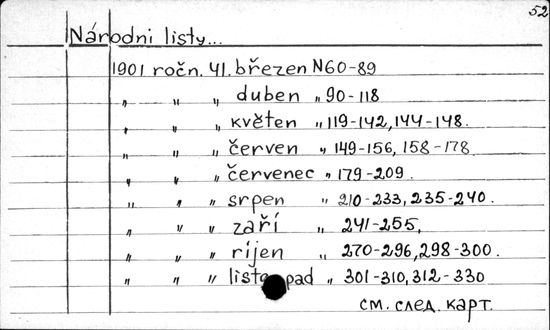 52
Národni listy...
1901 ročn. 41. březen N60-89
" " " duben " 90-118
" " " květen " 119-142, 144-148.
" " " červen " 149-156, 158-178
" " " červenec " 179-209.
" " " srpen " 210-233, 235-240.
" " " září " 241-255,
" " " říjen " 270-296, 298-300.
" " " listopad " 301-310, 312-330
см. след. карт.